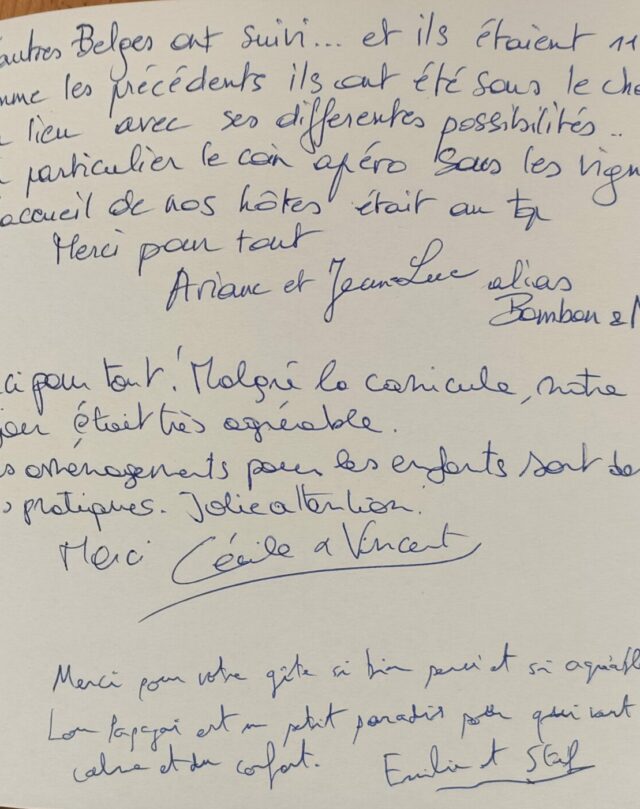 autres Belges ont suivi... et ils étaient 11
mme les précédents ils ont été sous le cha
lieu avec ses differentes possibilités..
particulier le coin apéro sous les vign
accueil de nos hôtes était au top
Merci pour tout
Ariane et Jean-Luc alias
Bombon &
ci pour tout! Malgré la canicule, notre
jour était très agréable.
s aménagements pour les enfants sont
s pratiques. Jolie attention.
Merci Cécile & Vincent
Merci pour votre gîte si bien pensé et si agréabl
Lou Papagai est un petit paradis pour qui veut
calme et du confort. Emilie et